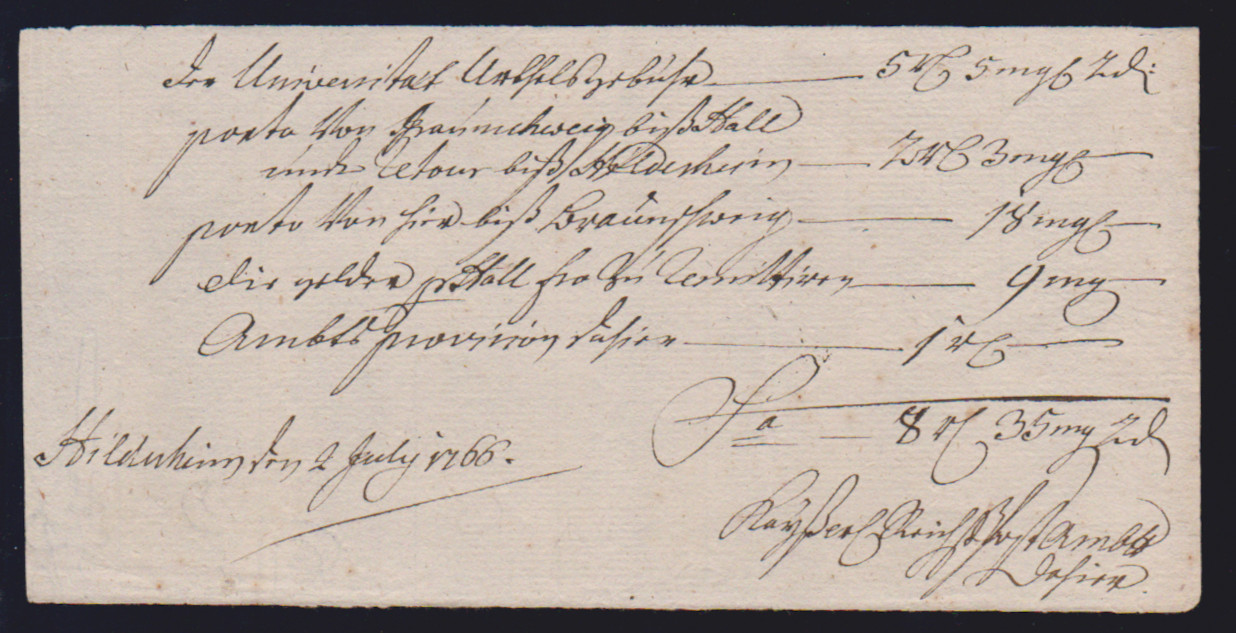 der Universitaet Urthelsgebühr — 5 rl 5 mgl 2 d:
porto von Braunschweig biß Hall
und retour biß Hildesheim — 2 rl 3 mgl —
porto von hier biß Braunschweig — 18 mgl —
die gelder p Hall fro zu remittiren — 9 mg —
Ambts provision dahier — 1 rl —
Sa — 8 rl 35 mg 2 d
Hildesheim den 2 July 1766.
Kayßerl Reichs Post Ambt
dahier